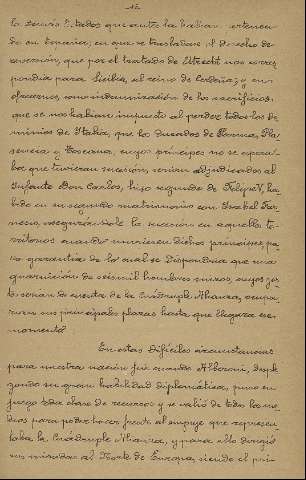 12
los demás Estados que ante la Haban
do su tenaria, en que se trasladase el derecho de
reversión, que por el tratado de Utrecht nos corres
pondía para Sicilia, al reino de Cerdeña; y en
ofrecernos, como indemnización de los sacrificios
que se nos habían impuesto al perder todos los do
minios de Italia, que los ducados de Parma, Pla
sencia y Toscana, cuyos príncipes no se espera
ba que tuvieran sucesión, serían adjudicados al
Infante Don Carlos, hijo segundo de Felipe V, ha
bido en su segundo matrimonio con Isabel Far
nesio, asegurándole la sucesión en aquellos te
rritorios cuando murieran dichos príncipes, pa
ra garantía de lo cual se disponía que una
guarnición de seis mil hombres suizos, cuyos gas
tos serían de cuenta de la Cuádruple Alianza, ocupa
ran sus principales plazas hasta que llegara ese
momento.
En estas difíciles circunstancias
para nuestra nación fué cuando Alberoni, desple
gando su gran habilidad diplomática, puso en
juego toda clase de recursos y se valió de todos los me
dios para poder hacer frente al empuje que represen
taba la Cuádruple Alianza, y para ello dirigió
sus miradas al Norte de Europa, siendo el pri